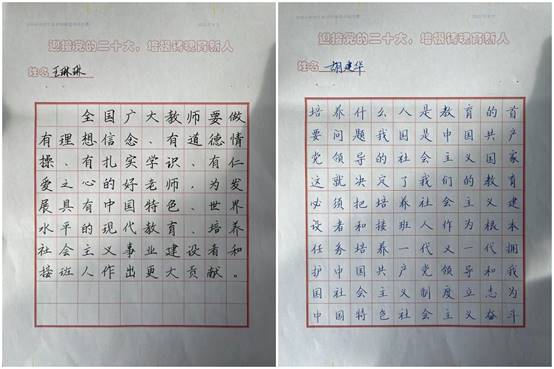 迎接党的二十大，培根铸魂育新人
姓名 王琳琳
全国广大教师要做
有理想信念、有道德情
操、有扎实学识、有仁
爱之心的好老师，为发
展具有中国特色、世界
水平的现代教育、培养
社会主义事业建设者和
接班人作出更大贡献。
迎接党的二十大，培根铸魂育新人
姓名 胡建华
培养什么人是教育的首
要问题我国是中国共产
党领导的社会主义国家
这就决定了我们的教育
必须把培养社会主义建
设者和接班人作为根本
任务培养一代又一代拥
护中国共产党领导和我
国社会主义制度立志为
中国特色社会主义奋斗